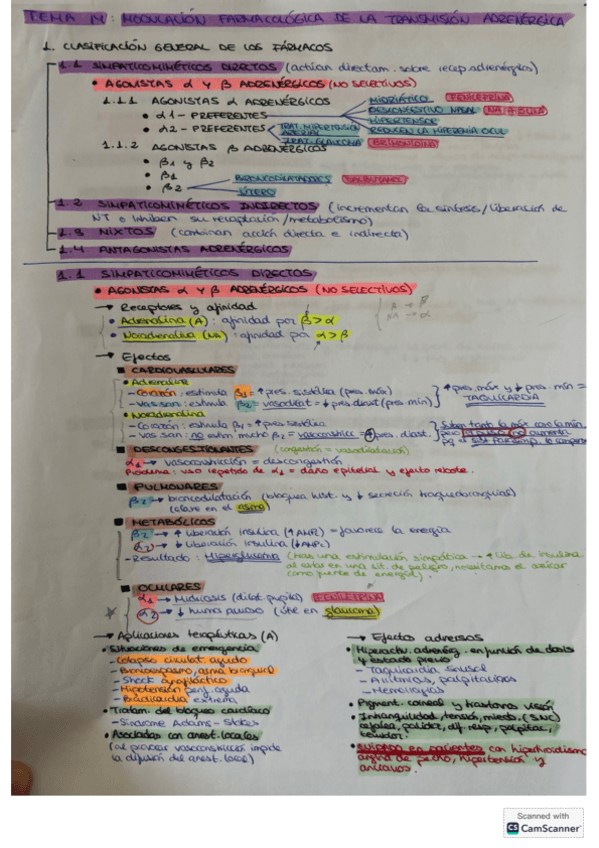 TEMA IV: MODULACIÓN FARMACOLÓGICA DE LA TRANSMISIÓN ADRENÉRGICA
1. CLASIFICACIÓN GENERAL DE LOS FÁRMACOS
1.1 SIMPATICOMIMÉTICOS DIRECTOS (actúan directam. sobre recep. adrenérgicos)
• AGONISTAS α Y β ADRENÉRGICOS (NO SELECTIVOS)
1.1.1 AGONISTAS α ADRENÉRGICOS
• α1 - PREFERENTES
• α2 - PREFERENTES
MIDRIÁTICO FENILEFRINA
DESCONGESTIVO NASAL
HIPERTENSOR
TRAT. HIPERTENSIÓN ARTERIAL
TRAT. GLAUCOMA BRIMONIDINA
1.1.2 AGONISTAS β ADRENÉRGICOS
• β1 y β2
• β1
• β2
BRONCODILATADORES SALBUTAMOL
ÚTERO
1.2 SIMPATICOMIMÉTICOS INDIRECTOS (incrementan la síntesis/liberación de
NT o inhiben su recaptación/metabolismo)
1.3 MIXTOS (combinan acción directa e indirecta)
1.4 ANTAGONISTAS ADRENÉRGICOS
1.1 SIMPATICOMIMÉTICOS DIRECTOS
• AGONISTAS α Y β ADRENÉRGICOS (NO SELECTIVOS)
→ Receptores y afinidad
• Adrenalina (A): afinidad por β > α
• Noradrenalina (NA): afinidad por α > β
A → β
NA → α
→ Efectos
■ CARDIOVASCULARES
• Adrenalina
- Corazón: estimula β1 = ↑ pres. sistólica (pres. máx)
- Vas. san: estimula β2 = vasodilat = ↓ pres. diast (pres. mín)
↑ pres. máx y ↓ pres. mín =
TAQUICARDIA
• Noradrenalina
- Corazón: estimula β1 = ↑ pres. sistólica
- Vas. san: no estim mucho β2 = vasoconstricc = ↑ pres. diast.
Suben tanto la máx como la mín
■ DESCONGESTIONANTES (congestión = vasodilatación)
α1 → vasoconstricción = descongestión
Problema: uso repetido de α1 = daño epitelial y efecto rebote.
■ PULMONARES
β2 → broncodilatación (bloquea hist. y ↓ secreción traqueobronquial)
(clave en el asma)
■ METABÓLICOS
β2 → ↑ liberación insulina (↑ AMPc) = favorece la energía
α2 → ↓ liberación insulina (↓ AMPc)
- Resultado: Hiperglucemia
■ OCULARES
α1 → Midriasis (dilat. pupila) FENILEFRINA
α2 → ↓ humor acuoso (útil en glaucoma)
→ Aplicaciones terapéuticas (A)
• Situaciones de emergencia
- Colapso circulat. agudo
- Broncoespasmo, asma bronquial
- Shock anafiláctico
- Hipotensión perif. aguda
- Bradicardia extrema
• Tratam. del bloqueo cardíaco
- Síndrome Adams-Stokes
• Asociados con anest. locales
(al provocar vasoconstricción impide
la difusión del anest. local)
→ Efectos adversos
• Hiperactiv. adrenérg. en función de dosis
y estado previo
- Taquicardia sinusal
- Arritmias, palpitaciones
- Hemorragias
• Pigment. corneal y trastorno visión
• Intranquilidad, tensión, miedo, (SNC)
cefalea, palidez, dif. resp., palpitac,
temblor.
• CUIDADO en pacientes con hipertiroidismo
angina de pecho, hipertensión y
ancianos.
Scanned with
CS CamScanner